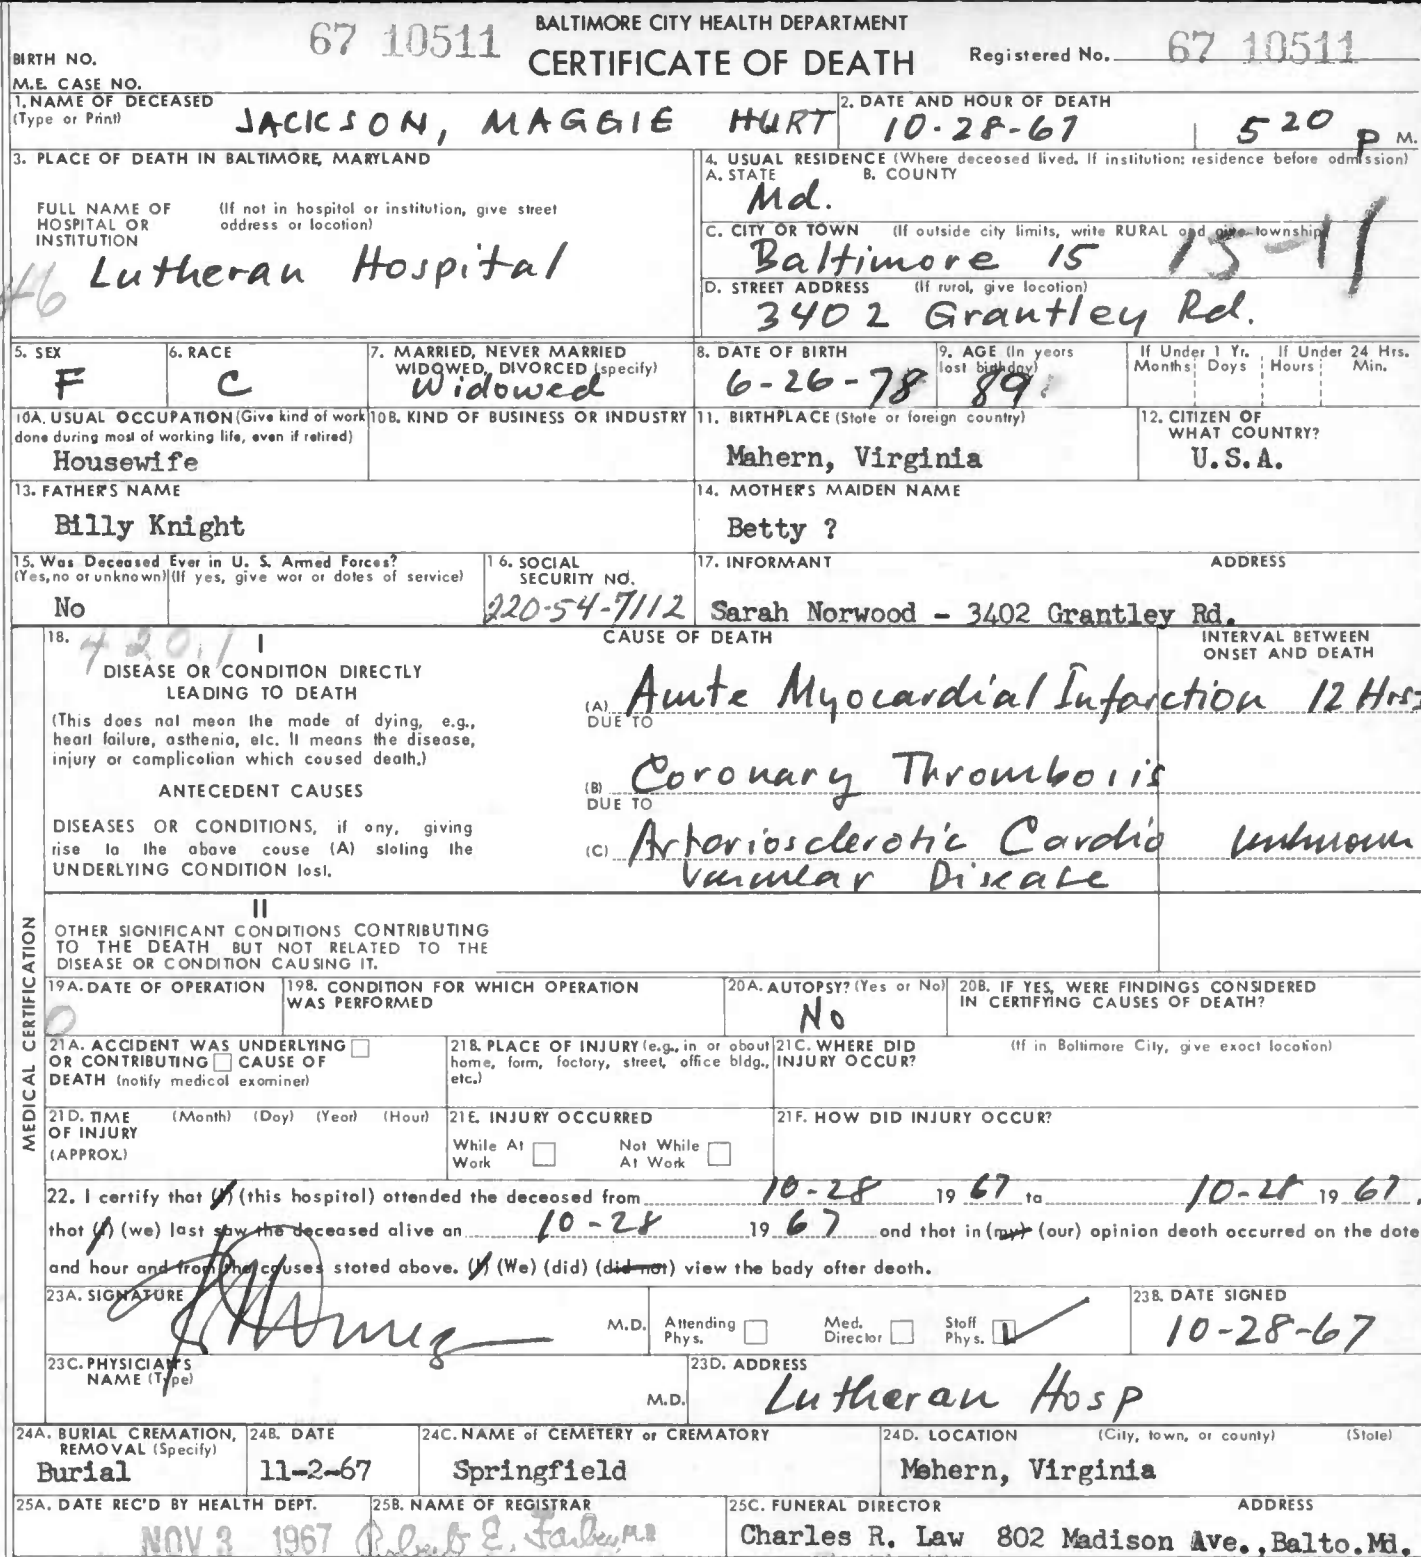 BALTIMORE CITY HEALTH DEPARTMENT
67 10511 CERTIFICATE OF DEATH Registered No. 67 10511
BIRTH NO.
M.E. CASE NO.
1. NAME OF DECEASED (Type or Print) JACKSON, MAGGIE HURT
2. DATE AND HOUR OF DEATH 10-28-67 5 20 P M.
3. PLACE OF DEATH IN BALTIMORE, MARYLAND
FULL NAME OF HOSPITAL OR INSTITUTION (If not in hospital or institution, give street address or location)
46 Lutheran Hospital
4. USUAL RESIDENCE (Where deceased lived. If institution: residence before admission)
A. STATE B. COUNTY
Md.
C. CITY OR TOWN (If outside city limits, write RURAL and give township)
Baltimore 15 15-11
D. STREET ADDRESS (If rural, give location)
3402 Grantley Rd.
5. SEX F
6. RACE C
7. MARRIED, NEVER MARRIED WIDOWED, DIVORCED (specify) Widowed
8. DATE OF BIRTH 6-26-78
9. AGE (In years last birthday) 89
If Under 1 Yr. Months Days If Under 24 Hrs. Hours Min.
10A. USUAL OCCUPATION (Give kind of work done during most of working life, even if retired) Housewife
10B. KIND OF BUSINESS OR INDUSTRY
11. BIRTHPLACE (State or foreign country) Mahern, Virginia
12. CITIZEN OF WHAT COUNTRY? U.S.A.
13. FATHER'S NAME Billy Knight
14. MOTHER'S MAIDEN NAME Betty ?
15. Was Deceased Ever in U. S. Armed Forces? (Yes, no or unknown) (If yes, give war or dates of service) No
16. SOCIAL SECURITY NO. 220-54-7112
17. INFORMANT ADDRESS
Sarah Norwood - 3402 Grantley Rd.
MEDICAL CERTIFICATION
18. 420.1 I CAUSE OF DEATH INTERVAL BETWEEN ONSET AND DEATH
DISEASE OR CONDITION DIRECTLY LEADING TO DEATH
(This does not mean the mode of dying, e.g., heart failure, asthenia, etc. It means the disease, injury or complication which caused death.)
(A) Acute Myocardial Infarction 12 Hrs.
DUE TO
ANTECEDENT CAUSES
(B) Coronary Thrombosis
DUE TO
DISEASES OR CONDITIONS, if any, giving rise to the above cause (A) stating the UNDERLYING CONDITION last.
(C) Arteriosclerotic Cardio unknown
Vascular Disease
II
OTHER SIGNIFICANT CONDITIONS CONTRIBUTING TO THE DEATH BUT NOT RELATED TO THE DISEASE OR CONDITION CAUSING IT.
19A. DATE OF OPERATION 0
19B. CONDITION FOR WHICH OPERATION WAS PERFORMED
20A. AUTOPSY? (Yes or No) No
20B. IF YES, WERE FINDINGS CONSIDERED IN CERTIFYING CAUSES OF DEATH?
21A. ACCIDENT WAS UNDERLYING OR CONTRIBUTING CAUSE OF DEATH (notify medical examiner)
21B. PLACE OF INJURY (e.g., in or about home, farm, factory, street, office bldg., etc.)
21C. WHERE DID INJURY OCCUR? (If in Baltimore City, give exact location)
21D. TIME OF INJURY (APPROX.) (Month) (Day) (Year) (Hour)
21E. INJURY OCCURRED
While At Work Not While At Work
21F. HOW DID INJURY OCCUR?
22. I certify that (I) (this hospital) attended the deceased from 10-28 19 67 to 10-28 19 67,
that (I) (we) last saw the deceased alive on 10-28 19 67 and that in (my) (our) opinion death occurred on the date
and hour and from the causes stated above. (I) (We) (did) (did not) view the body after death.
23A. SIGNATURE M.D. Attending Phys. Med. Director Staff Phys.
23B. DATE SIGNED 10-28-67
23C. PHYSICIAN'S NAME (Type) M.D.
23D. ADDRESS Lutheran Hosp
24A. BURIAL CREMATION, REMOVAL (Specify) Burial
24B. DATE 11-2-67
24C. NAME of CEMETERY or CREMATORY Springfield
24D. LOCATION (City, town, or county) (State) Mehern, Virginia
25A. DATE REC'D BY HEALTH DEPT. NOV 3 1967
25B. NAME OF REGISTRAR Robert E. Farber, M.D.
25C. FUNERAL DIRECTOR ADDRESS
Charles R. Law 802 Madison Ave., Balto. Md.